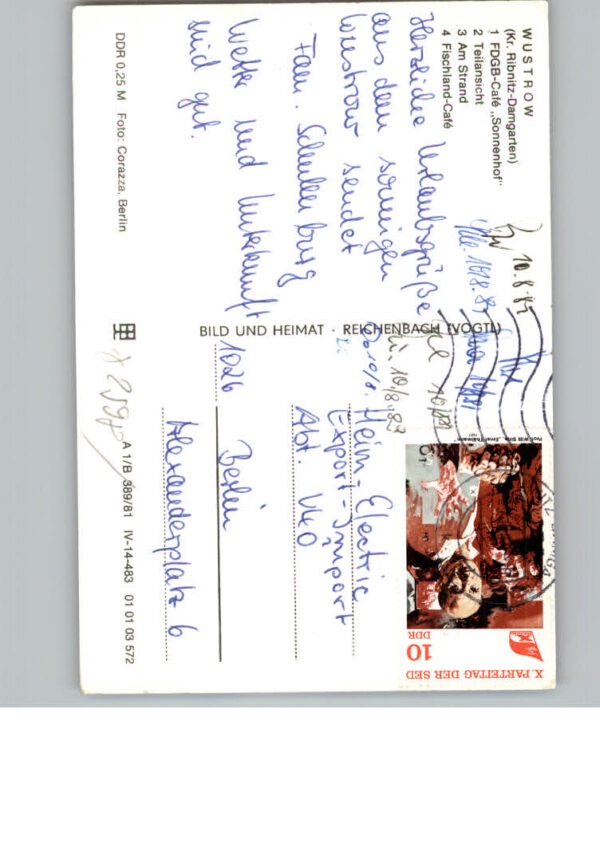 WUSTROW
(Kr. Ribnitz-Damgarten)
1 FDGB-Café „Sonnenhof"
2 Teilansicht
3 Am Strand
4 Fischland-Café
Herzliche Urlaubsgrüße
aus dem sonnigen
Wustrow sendet
Fam. Schulenburg
Wetter und Unterkunft
sind gut.
DDR 0,25 M Foto: Corazza, Berlin
BILD UND HEIMAT · REICHENBACH (VOGTL)
10.8.
10/8.
X. PARTEITAG DER SED
10
DDR
Heim-Electric
Export-Import
Abt.
1026 Berlin
Alexanderplatz 6
A 1/B 389/81 IV-14-483 01 01 03 572